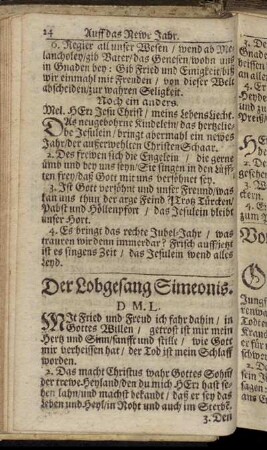 14 Auff das Newe Jahr.
6. Regier all unser Wesen / wend ab Me-
lancholey / gib Vater / das Genesen / wohn uns
in Gnaden bey: Gib Fried und Einigkeit / biß
wir einmahl mit Freuden / von dieser Welt
abscheiden / zur wahren Seligkeit.
Noch ein anders.
Mel. HErr Jesu Christ / meins Lebens Liecht.
DAs neugebohrne Kindelein / das hertzelie-
be Jesulein / bringt abermahl ein newes
Jahr / der außerwehlten Christen-Schaar.
2. Des frewen sich die Engelein / die gerne
umb und bey uns seyn / Sie singen in den Lüff-
ten frey / daß Gott mit uns versöhnet sey.
3. Ist Gott versöhnt und unser Freund / was
kan uns thun der arge Feind / Trotz Türcken /
Pabst und Höllenpfort / das Jesulein bleibt
unser Hort.
4. Es bringt das rechte Jubel-Jahr / was
trauren wir denn immerdar? Frisch auff / jetzt
ist es singens Zeit / das Jesulein wend alles
Leyd.
Der Lobgesang Simeonis.
D M. L.
MIt Fried und Freud ich fahr dahin / in
Gottes Willen / getrost ist mir mein
Hertz und Sinn / sanfft und stille / wie Gott
mir verheissen hat / der Tod ist mein Schlaff
worden.
2. Das macht Christus wahr Gottes Sohn /
der trewe Heyland / den du mich HErr hast se-
hen lahn / und macht bekandt / daß er sey das
Leben und Heyl / in Noht und auch im Sterbē.
3. Den